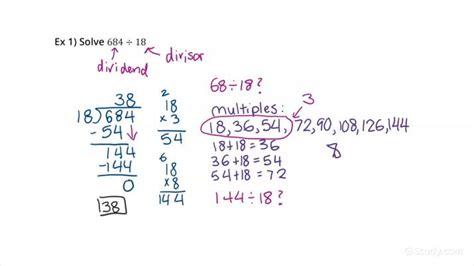 Ex 1) Solve 684 ÷ 18
dividend
divisor
38
18)684
-54
144
-144
0
38
2
18
×3
54
6
18
×8
144
68÷18?
multiples:
3
18,36,54,72,90,108,126,144
8
18+18=36
36+18=54
54+18=72
144÷18?
Study.com